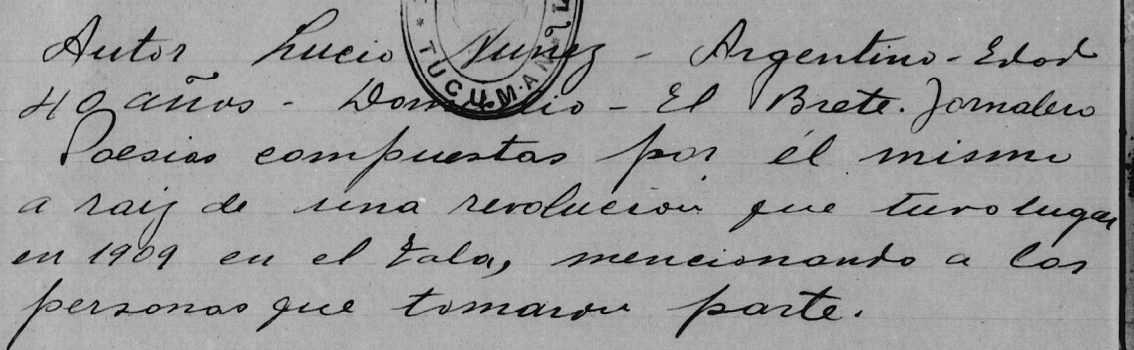 Autor Lucio Nunez - Argentino - Edad
40 años - Domicilio - El Brete. Jornalero
Poesias compuestas por él mismo
a raiz de una revolución que tuvo lugar
en 1909 en el Tala, mencionando a las
personas que tomaron parte.
TUCUMAN